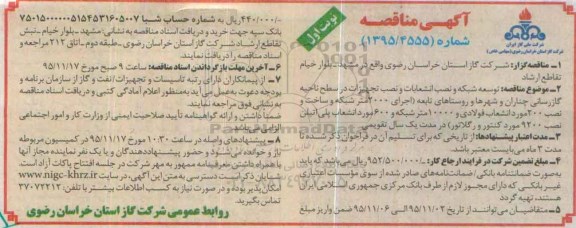 آگهی مناقصه
شماره (۱۳۹۵/۳۵۵۵)
نوبت اول
شرکت ملی گاز ایران
شرکت گاز استان خراسان رضوی (سهامی خاص)
۱- مناقصه گزار: شرکت گاز استان خراسان رضوی واقع در مشهد- بلوار خیام
تقاطع ارشاد
۲- موضوع مناقصه: توسعه شبکه و نصب انشعابات و نصب تجهیزات در سطح ناحیه
گازرسانی چناران و شهرها و روستاهای تابعه (اجرای ۲۰۰۰ متر شبکه و ساخت و
نصب ۲۰۰ مورد انشعاب فولادی و ۱۰۰۰۰ متر شبکه و ۶۰۰ مورد انشعاب پلی اتیلن
نصب ۹۲۰۰ مورد کنتور و رگلاتور) در مدت یک سال تقویمی
۳- مدت اعتبار پیشنهادها: از تاریخی که برای تسلیم آن در فراخوان ذکر شده تا
مدت ۳ ماه می بایست معتبر باشد.
۴- مبلغ تضمین شرکت در فرایند ارجاع کار: ۹۵۲/۵۰۰/۰۰۰ ریال می باشد که باید
به صورت ضمانتنامه بانکی / ضمانت نامه های صادر شده از سوی مؤسسات اعتباری
غیر بانکی که دارای مجوز لازم از طرف بانک مرکزی جمهوری اسلامی ایران
هستند، تهیه گردد
۵- متقاضیان می توانند از تاریخ ۹۵/۱۱/۰۲ الی ۹۵/۱۱/۰۶ ضمن واریز مبلغ
۴۴۰/۰۰۰/- ریال به شماره حساب شبا ۷۵۰۱۵۰۰۰۰۰۰۵۱۵۴۵۳۱۶۰۵۰۰۷
بانک سپه جهت خرید و دریافت اسناد مناقصه به نشانی: مشهد - بلوار خیام - نبش
تقاطع ارشاد شرکت گاز استان خراسان رضوی - طبقه دوم - اتاق ۲۱۲ مراجعه و
اسناد مناقصه را دریافت نمایند.
۶- آخرین مهلت بازگرداندن اسناد مناقصه: ساعت ۹ صبح مورخ ۹۵/۱۱/۱۷
۷- از پیمانکاران دارای رتبه تاسیسات و تجهیزات / نفت و گاز از سازمان برنامه و
بودجه دعوت به عمل می آید به منظور اعلام آمادگی کتبی و دریافت اسناد مناقصه
به نشانی فوق مراجعه نمایند.
ضمنا داشتن و ارائه گواهینامه تأیید صلاحیت ایمنی از وزارت کار و امور اجتماعی
الزامی
۸- پیشنهادهای واصله در ساعت ۱۰:۳۰ مورخ ۹۵/۱۱/۱۷ در کمیسیون مربوطه
باز و خوانده می شود و حضور پیشنهاددهندگان و یا یک نفر نماینده مجاز آنها
با همراه داشتن معرفینامه ممهور به مهر شرکت در جلسه افتتاح پاکات آزاد است.
شایان ذکر است دسترسی به متن این آگهی، در سایت www.nigc-khrz.ir
امکان پذیر بوده و در صورت نیاز به کسب اطلاعات بیشتر با تلفن: ۳۷۰۷۲۲۱۲
تماس بگیرید.
روابط عمومی شرکت گاز استان خراسان رضوی